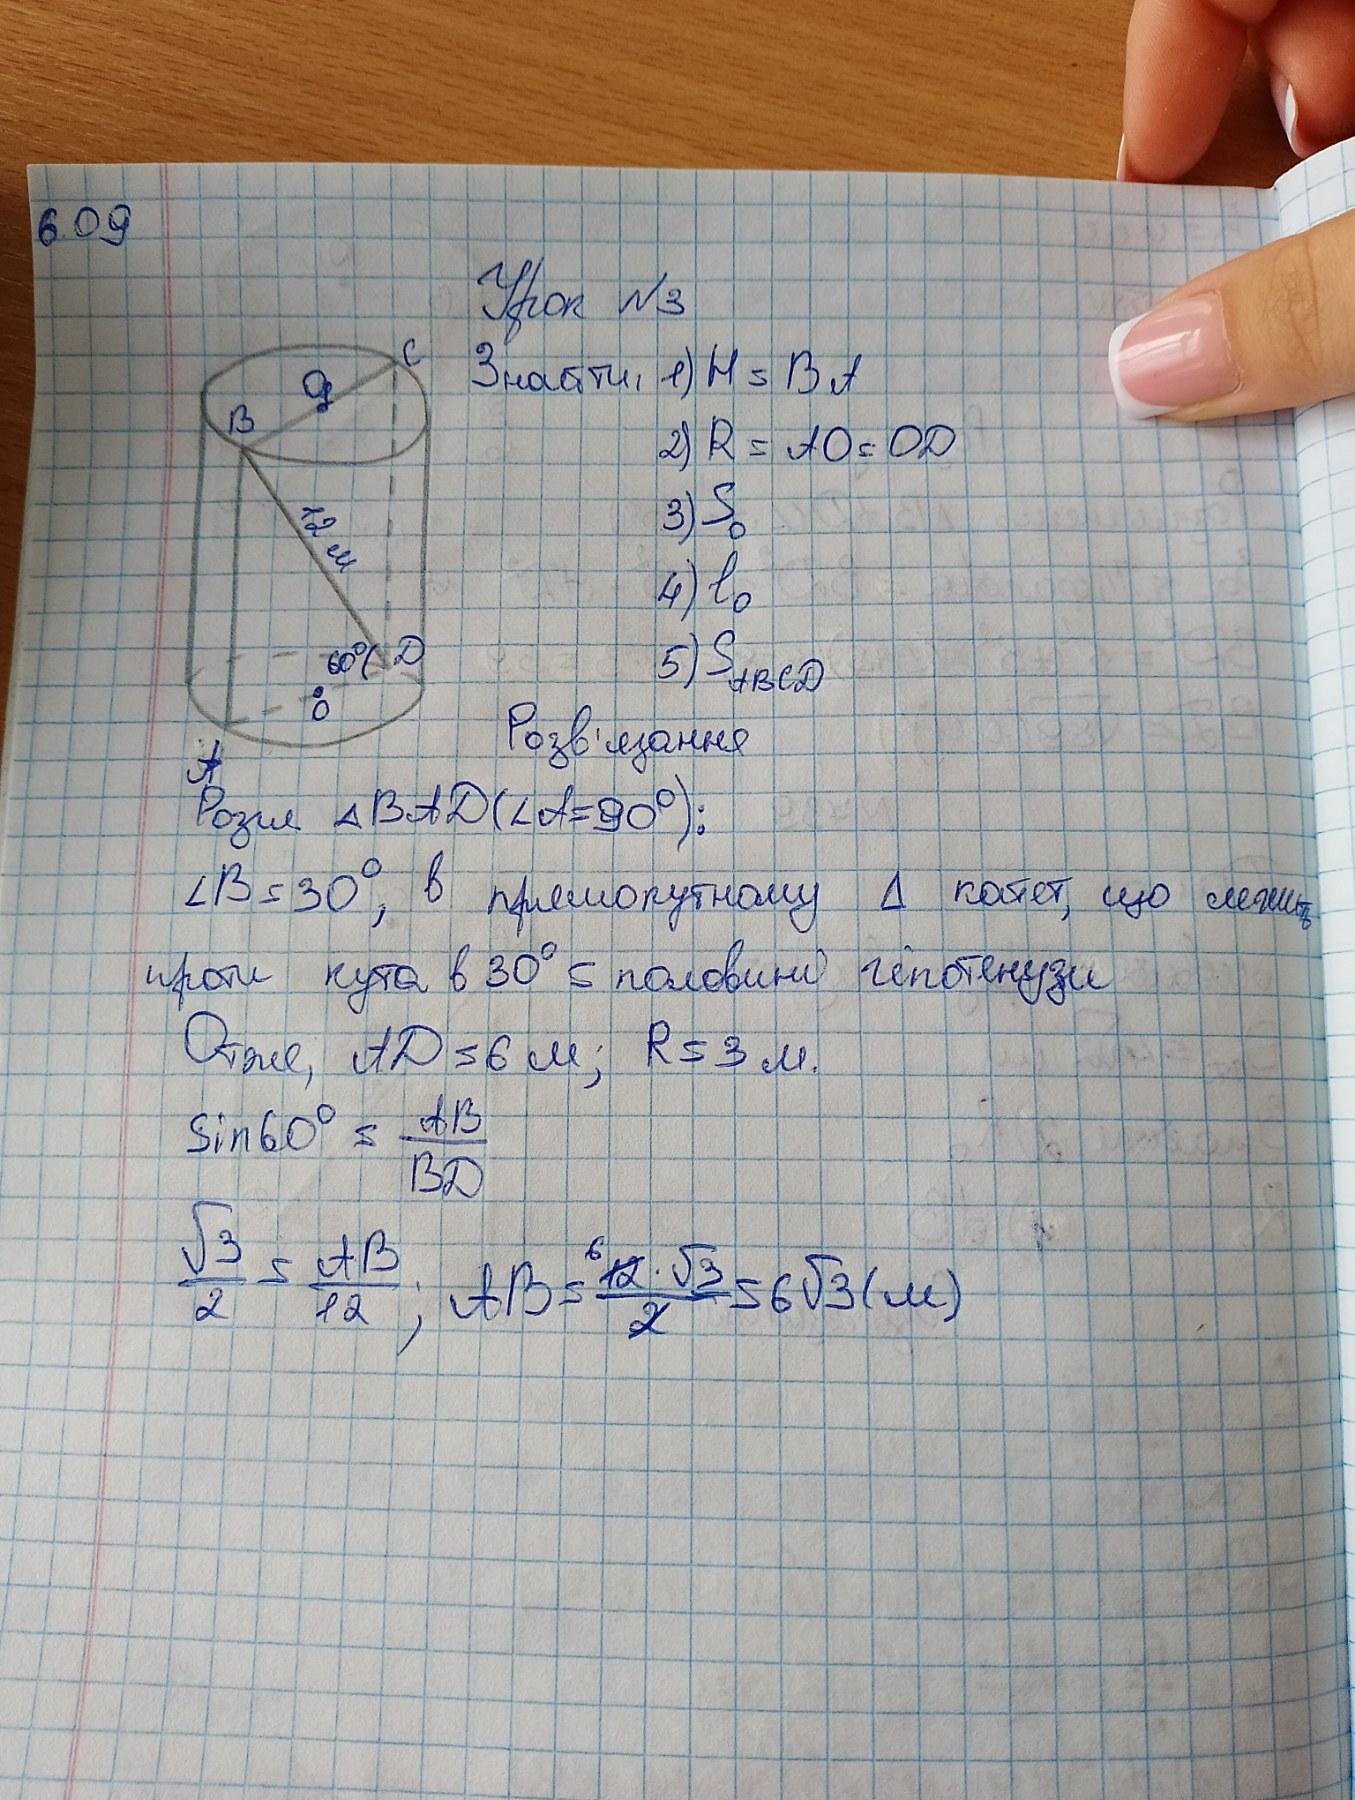 6.09
Урок №3
Знайти: 1) H = BA
2) R = AO = OD
3) S₀
4) l₀
5) S_ABCD
C
B
12 м
60°
D
O
A
Розв'язання
Розгл △BAD (∠A=90°):
∠B = 30°, в прямокутному △ катет, що лежить
проти кута в 30° = половині гіпотенузи
Отже, AD = 6 м; R = 3 м.
sin60° = AB/BD
√3/2 = AB/12; AB = 12·√3/2 = 6√3 (м)